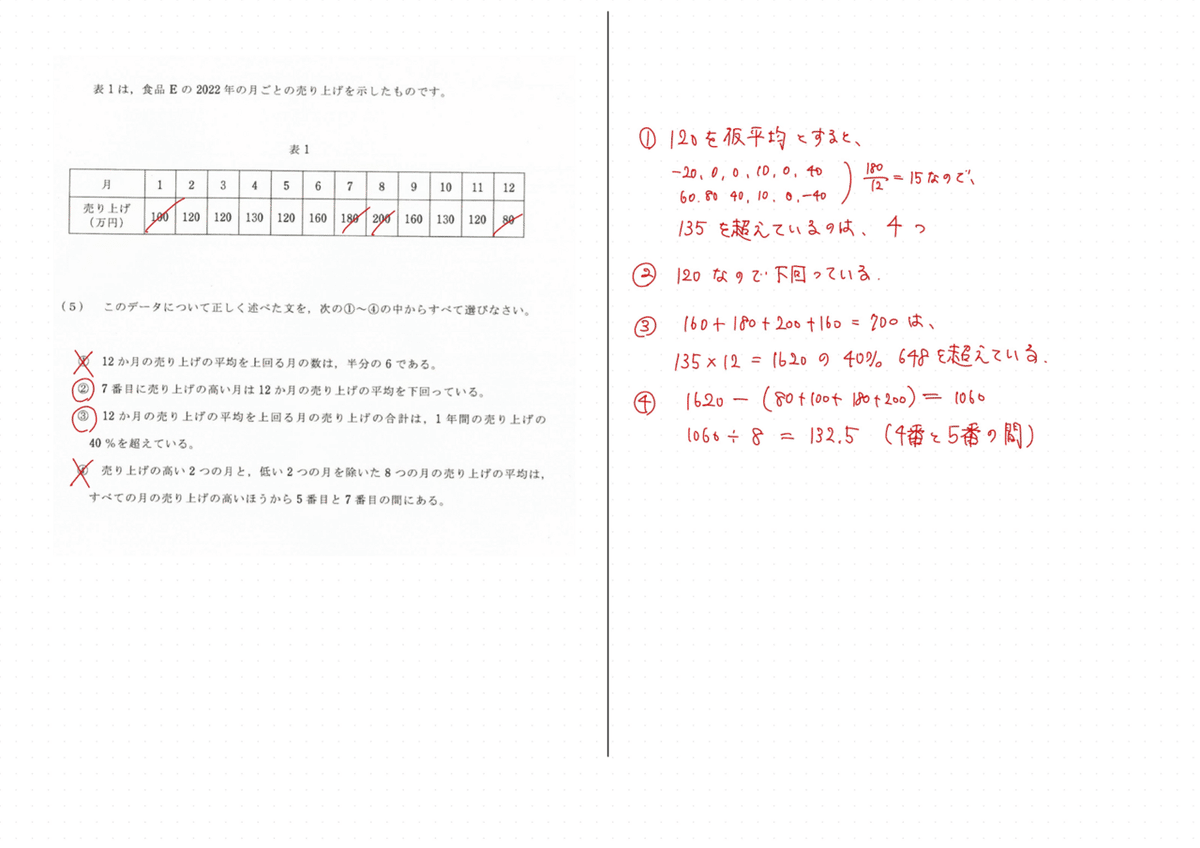 表1は，食品Eの2022年の月ごとの売り上げを示したものです。
表1
月 1 2 3 4 5 6 7 8 9 10 11 12
売り上げ（万円） 100 120 120 130 120 160 180 200 160 130 120 80
（5） このデータについて正しく述べた文を，次の①～④の中からすべて選びなさい。
① 12か月の売り上げの平均を上回る月の数は，半分の6である。
② 7番目に売り上げの高い月は12か月の売り上げの平均を下回っている。
③ 12か月の売り上げの平均を上回る月の売り上げの合計は，1年間の売り上げの
40％を超えている。
④ 売り上げの高い2つの月と，低い2つの月を除いた8つの月の売り上げの平均は，
すべての月の売り上げの高いほうから5番目と7番目の間にある。
① 120を仮平均とすると、
-20, 0, 0, 10, 0, 40
60, 80 40, 10, 0, -40
) 180/12 = 15なので、
135 を超えているのは、4つ
② 120 なので下回っている.
③ 160+180+200+160=700は、
135×12=1620の40% 648を超えている.
④ 1620-(80+100+180+200)=1060
1060÷8=132.5 (4番と5番の間)